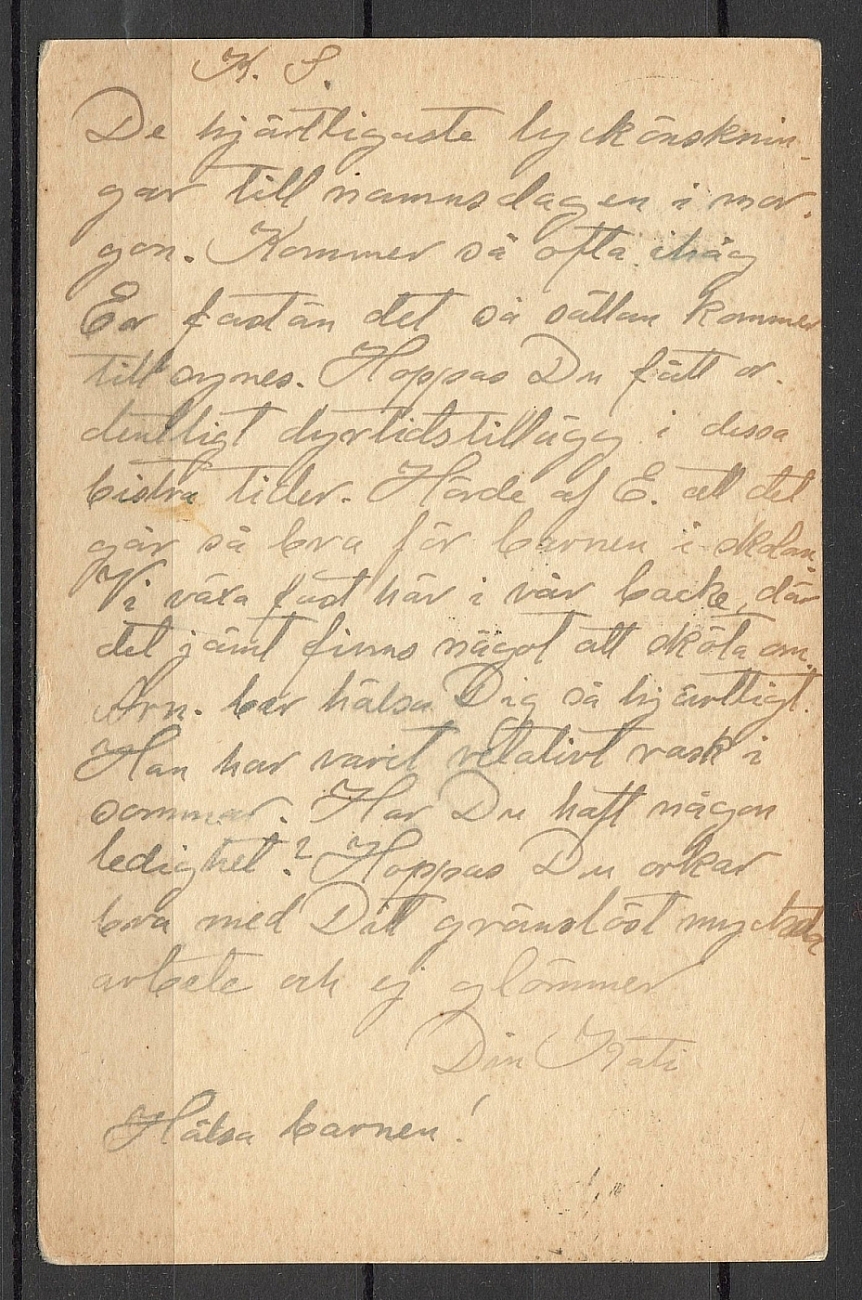 K. S.
De hjärtligaste lyckönsknin-
gar till namnsdagen i mor-
gon. Kommer så ofta ihåg
Er fastän det så sällan kommer
till synes. Hoppas Du fått or-
dentligt dyrtidstillägg i dessa
bistra tider. Hörde af E. att det
går så bra för barnen i skolan.
Vi växa fast här i vår backe, där
det jämt finns något att sköta om.
Arn. ber hälsa Dig så hjärtligt.
Han har varit relativt rask i
sommar. Har Du haft någon
ledighet? Hoppas Du orkar
bra med Ditt gränslöst myckna
arbete och ej glömmer
Din Kati
Hälsa barnen!